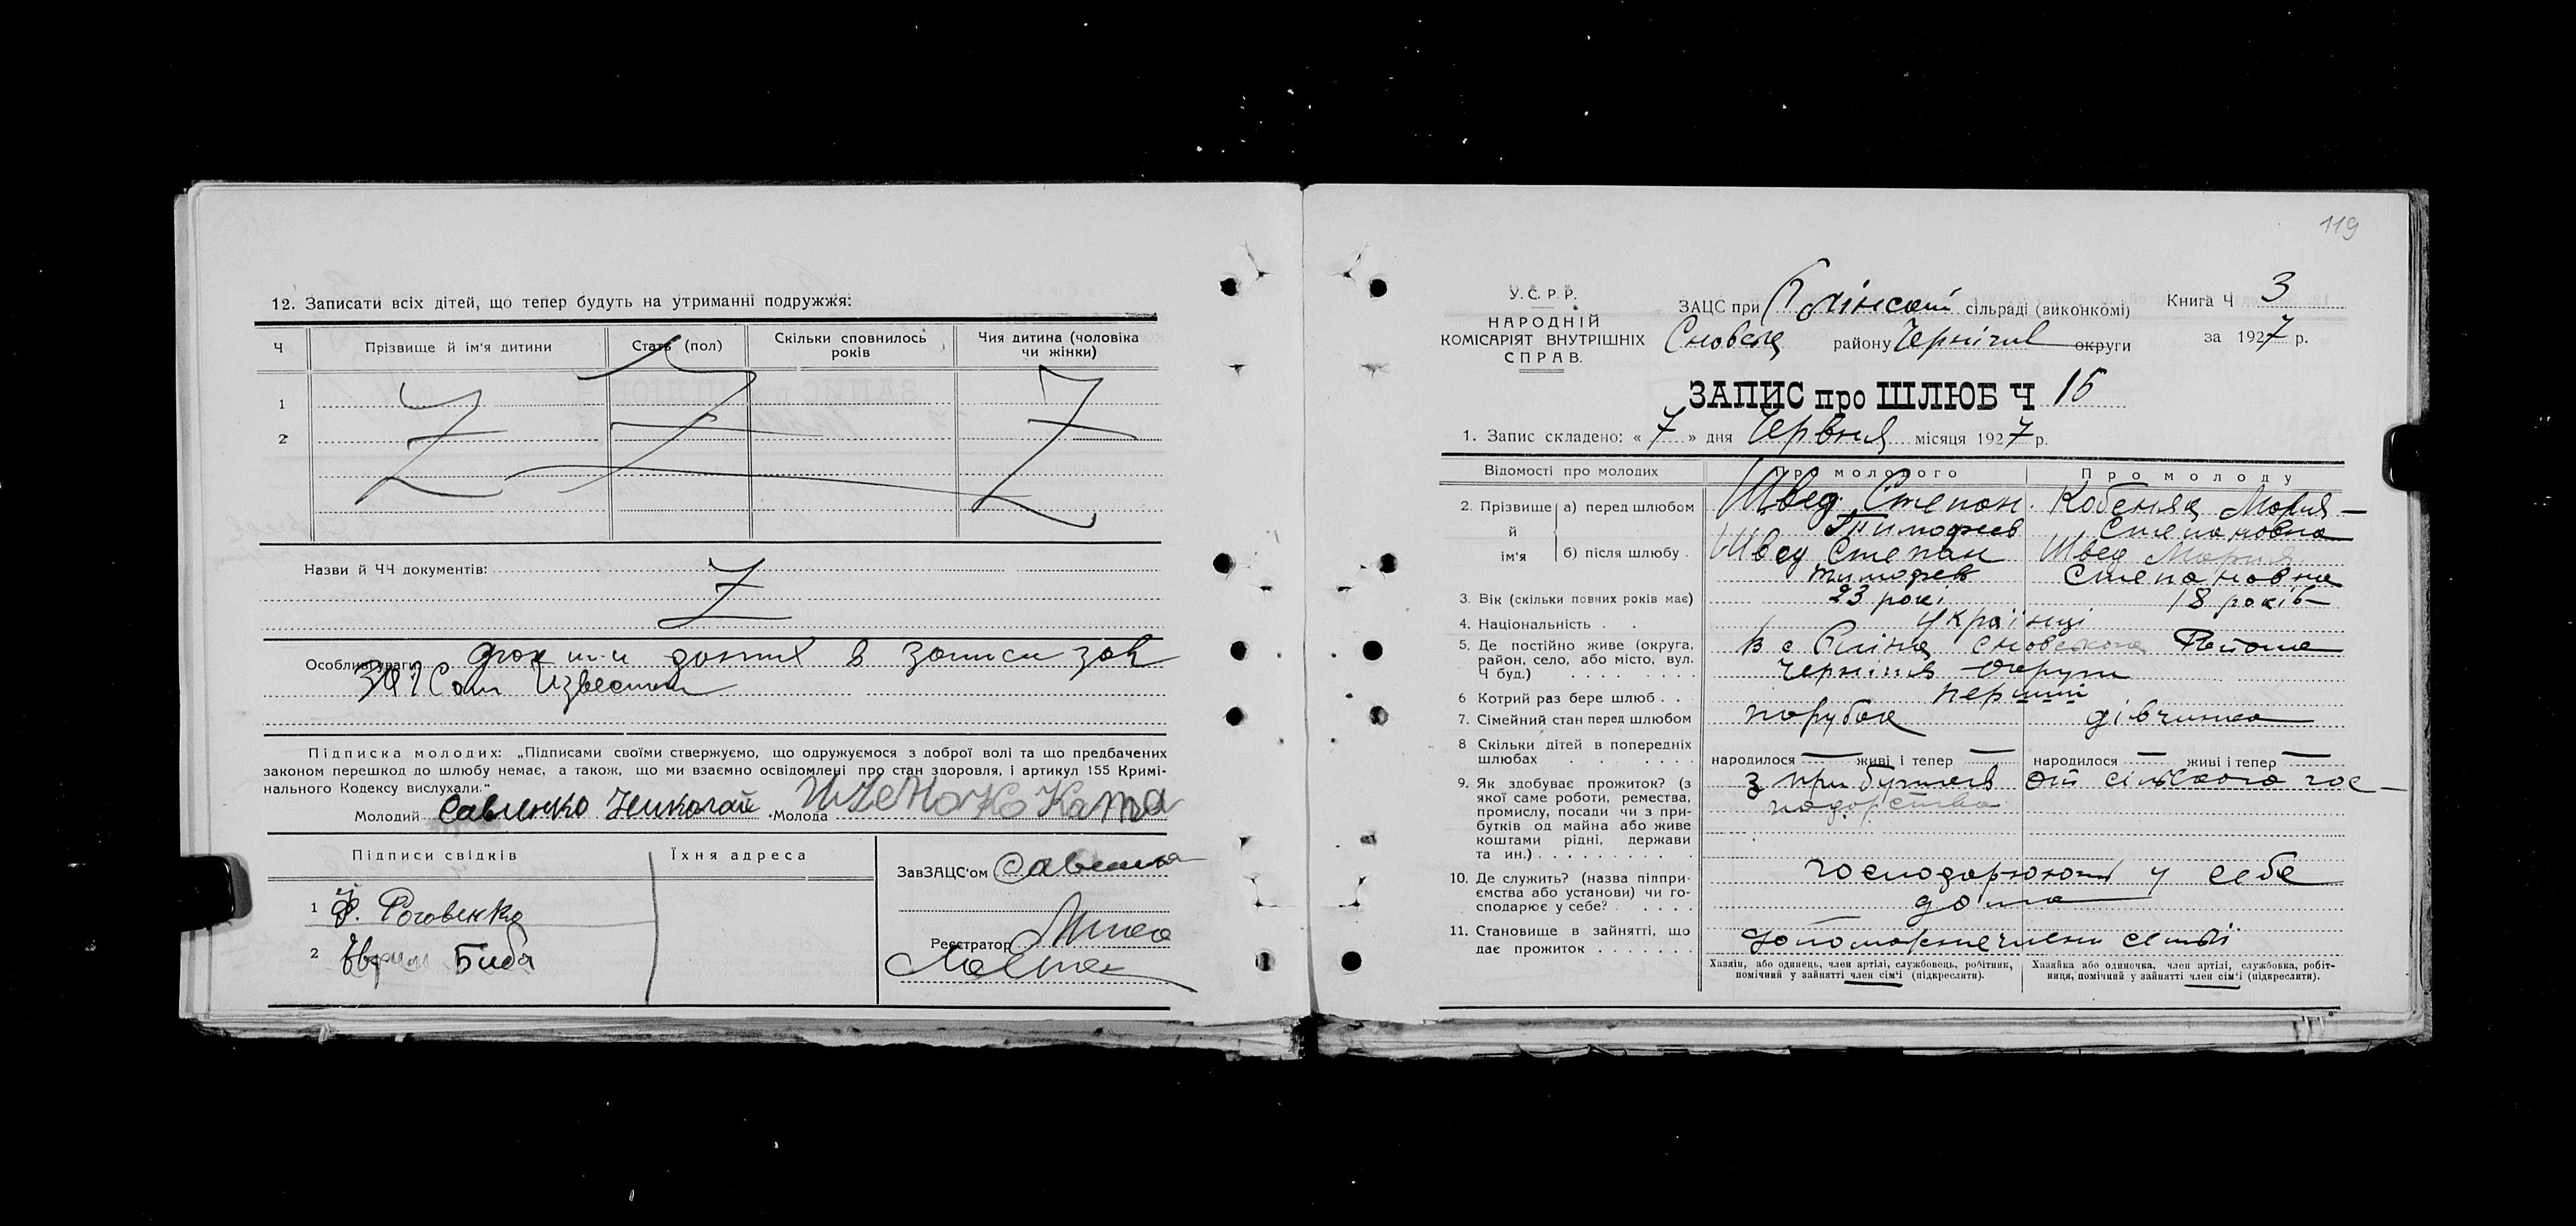 12. Записати всіх дітей, що тепер будуть на утриманні подружжя:
Ч
Прізвище й ім'я дитини
Стать (пол)
Скільки сповнилось років
Чия дитина (чоловіка чи жінки)
1
2
Назви й ЧЧ документів:
Особливі уваги
в записи
Підписка молодих: „Підписами своїми ствержуємо, що одружуємося з доброї волі та що предбачених
законом перешкод до шлюбу немає, а також, що ми взаємно освідомлені про стан здоровля, і артикул 155 Кримі-
нального Кодексу вислухали."
Молодий Савенко Николай Молода
Підписи свідків
Їхня адреса
1 Ф. Роговенко
2 Биба
ЗавЗАЦС'ом
Реєстратор
119
У.С.Р.Р.
НАРОДНІЙ
КОМІСАРІЯТ ВНУТРІШНІХ
СПРАВ.
ЗАЦС при сільраді (виконкомі)
району Чернігів округи
Книга Ч 3
за 1927 р.
ЗАПИС про ШЛЮБ Ч
1. Запис складено: « 7 » дня Червня місяця 1927 р.
Відомості про молодих
Про молодого
Про молоду
2. Прізвище й ім'я
а) перед шлюбом
Швед Степон
Тимофеев
Мария
Степановна
б) після шлюбу
Швед Степан
Тимофеев
Швед Мария
Степановна
3. Вік (скільки повних років має)
23 рокі
18 років
4. Національність
Українці
5. Де постійно живе (округа,
район, село, або місто, вул.
Ч буд.)
В с Сновского Района
Чернігів Округи
6 Котрий раз бере шлюб
перший
7. Сімейний стан перед шлюбом
порубок
дівчина
8 Скільки дітей в попередніх
шлюбах
народилося — живі і тепер —
народилося — живі і тепер —
9. Як здобуває прожиток? (з
якої саме роботи, ремества,
промислу, посади чи з при-
бутків од майна або живе
коштами рідні, держави
та ин.)
з прибутків от сільского гос-
подарства
10. Де служить? (назва піппри-
ємства або установи) чи го-
сподарює у себе?
господорюют у себе
дома
11. Становище в зайнятті, що
дає прожиток
Хазяїн, або одинець, член артілі, службовець, робітник,
помічний у зайнятті член сім'ї (підкреслити).
Хазяйка або одиночка, член артілі, службовка, робіт-
ниця, помічний у зайнятті член сім'ї (підкреслити).